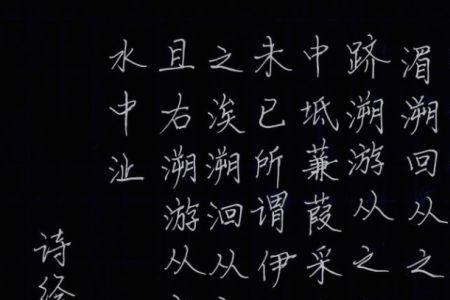 湄溯回从之
跻溯游从之
中坻蒹葭采
未已所谓伊
之涘溯洄从
且右溯游从
水中沚
诗经